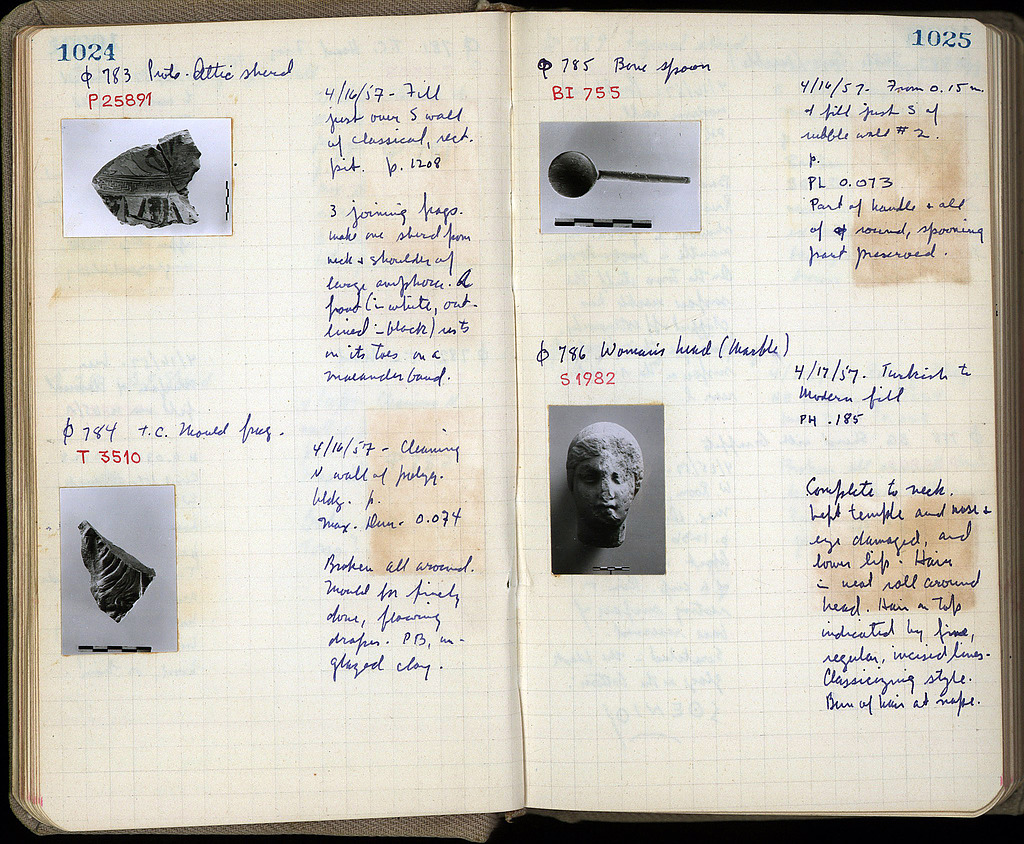 1024
φ 783 Proto-Attic sherd
P 25891
4/16/57 - Fill
just over S wall
of classical, rect.
pit. p. 1208
3 joining frags.
make one sherd from
neck & shoulder of
large amphora. A
(in white, out-
lined in black) rests
on its toes on a
maeander band.
φ 784 T.C. Mould frag.
T 3510
4/16/57 - Cleaning
N wall of polyg.
bldg. p.
Max. Dim. 0.074
Broken all around.
Mould for finely
done, flowing
drapery. PB, un-
glazed clay.
1025
φ 785 Bone spoon
BI 755
4/16/57 - From 0.15 m.
of fill just S of
rubble wall # 2.
p.
PL 0.073
Part of handle & all
of round, spooning
part preserved.
φ 786 Woman's head (Marble)
S 1982
4/17/57 - Turkish to
Modern fill
PH .185
Complete to neck.
Left temple and nose &
eye damaged, and
lower lip. Hair
in neat roll around
head. Hair on top
indicated by fine,
regular, incised lines -
Classicizing style.
Bun of hair at nape.